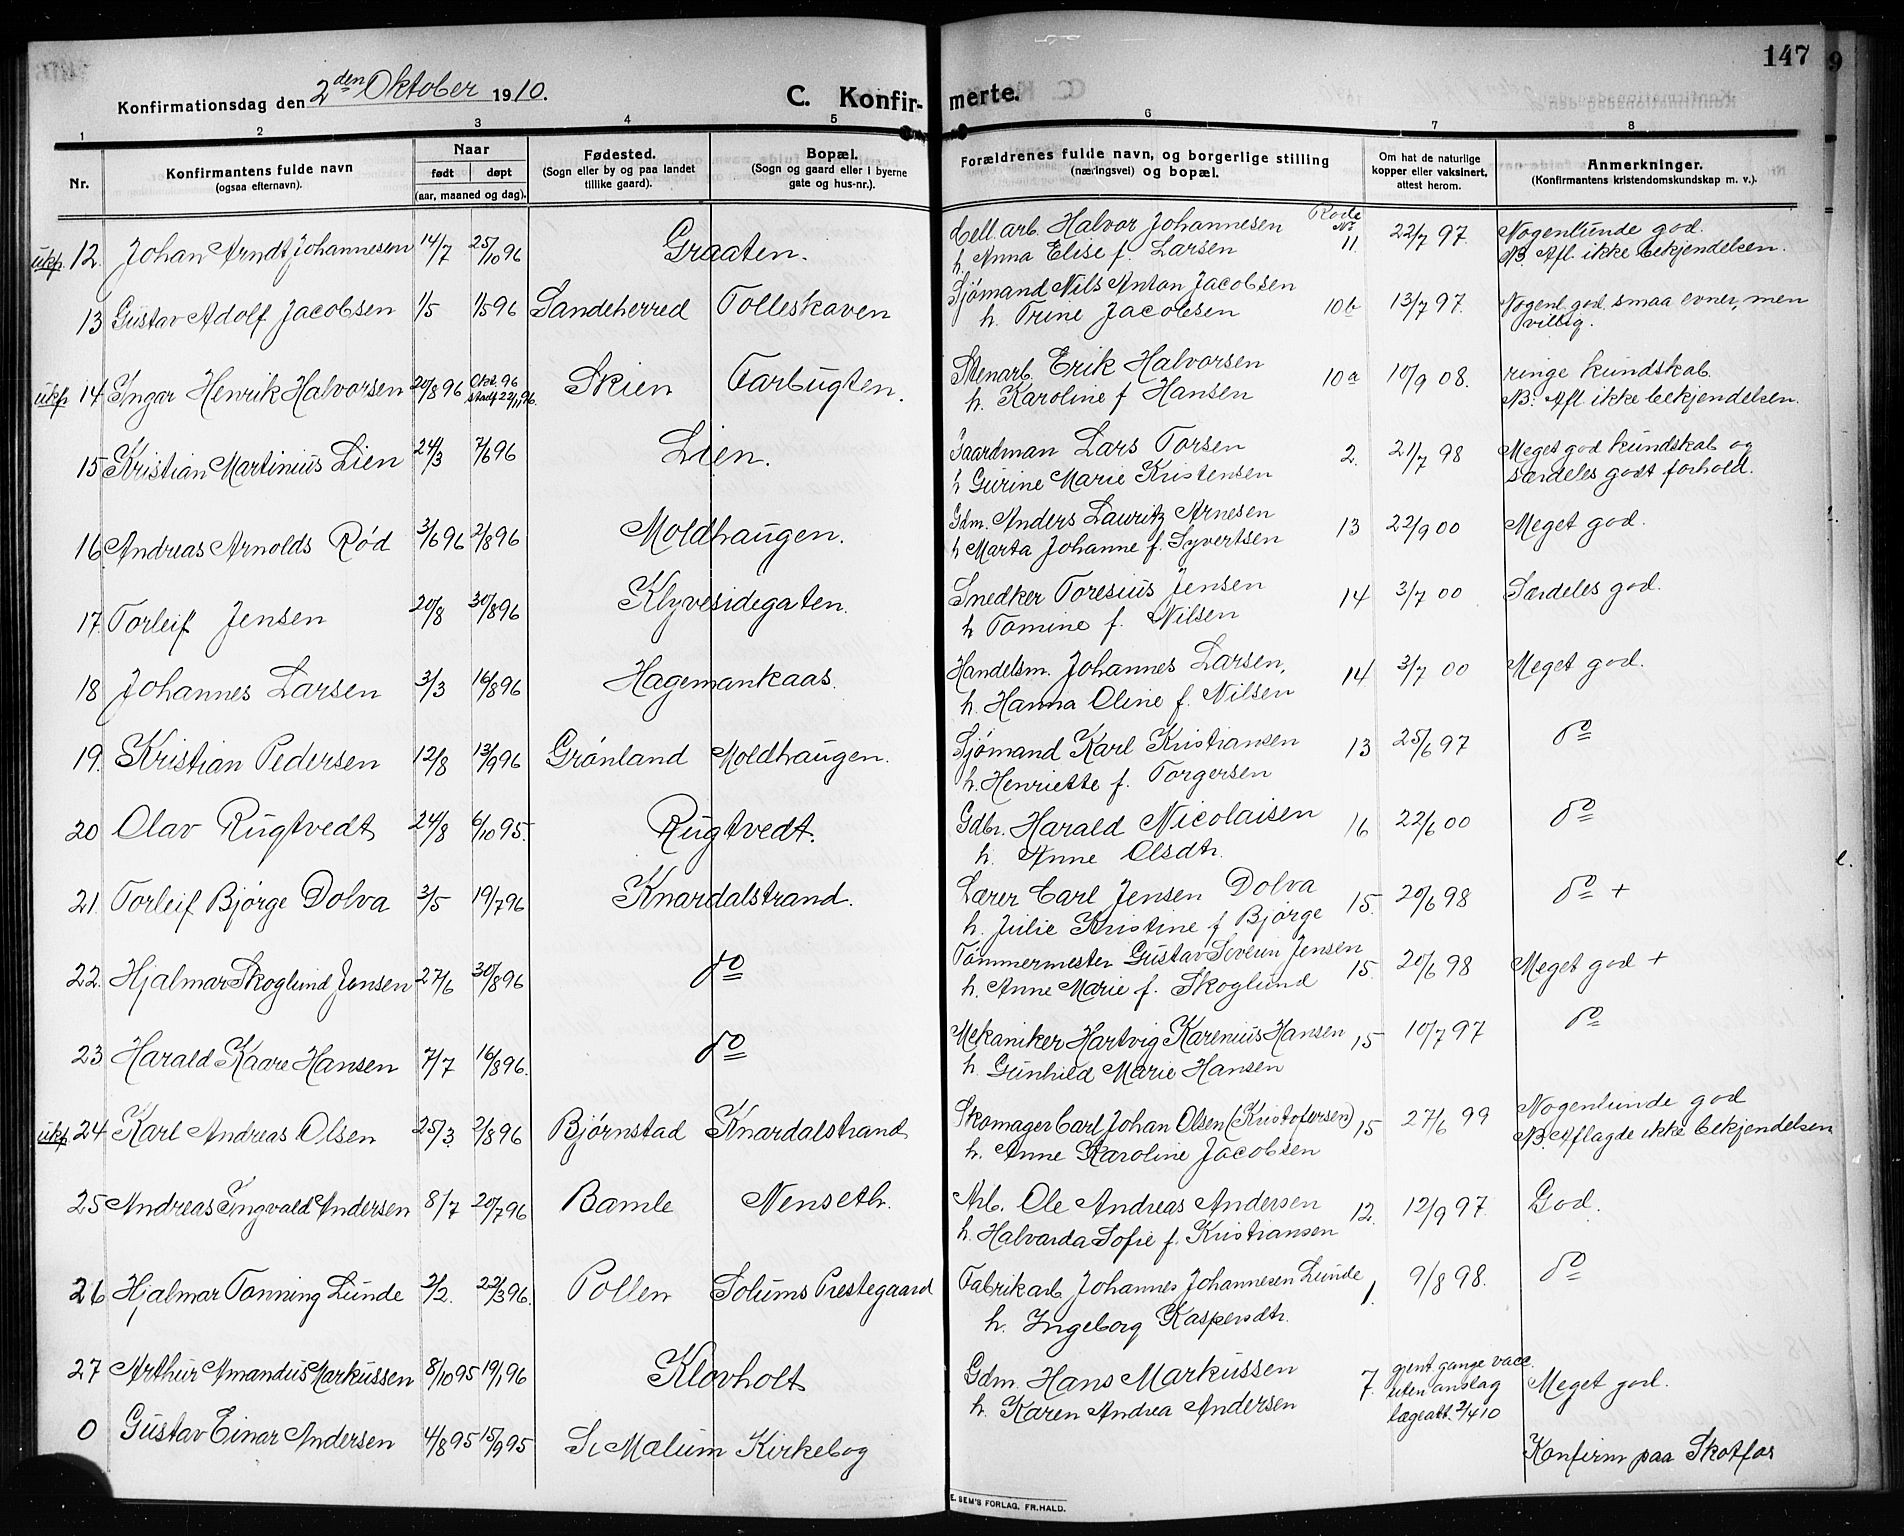 147
9
Konfirmationsdag den 2den Oktober 1910.
C. Konfirmerte.
1 2 3 4 5 6 7 8
Nr.
Konfirmantens fulde navn
(ogsaa efternavn).
Naar
født døpt
(aar, maaned og dag).
Fødested.
(Sogn eller by og paa landet
tillike gaard).
Bopæl.
(Sogn og gaard eller i byerne
gate og hus-nr.).
Forældrenes fulde navn, og borgerlige stilling
(næringsvei) og bopæl.
Om hat de naturlige
kopper eller vaksinert,
attest herom.
Anmerkninger.
(Konfirmantens kristendomskundskap m. v.).
Rode
Nr
ukf. 12. Johan Arndt Johannesen 14/7 25/10 96 Graaten. Cell. arb. Halvor Johannesen 11. 22/7 97. Nogenlunde god.
h. Anna Elise f. Larsen NB. Afl. ikke bekjendelsen.
13 Gustav Adolf Jacobsen 1/5 1/5 96 Sandeherred Tolleskaven Sjømand Nils Anton Jacobsen 10b 13/7 97. Nogenl. god. smaa evner, men
h. Trine Jacobsen villig.
ukf 14 Ingar Henrik Halvorsen 20/8 96 Okt. 96 stadf. 22/11 96. Skien Farbugten. Stenarb. Erik Halvorsen 10a 10/9 08. ringe kundskab
h. Karoline f Hansen NB. Afl. ikke bekjendelsen.
15 Kristian Martinius Lien 24/3 7/6 96 Lien. Gaardman Lars Torsen 2. 21/7 98 Meget god kundskab og
h Gurine Marie Kristensen særdeles godt forhold.
16 Andreas Arnolds Rød 3/6 96 2/8 96 Moldhaugen. Gdm. Anders Lauritz Arnesen 13 22/9 00 Meget god.
h Marta Johanne f. Syvertsen
17. Torleif Jensen 20/8 30/8 96 Klyvesidegaten. Snedker Toresius Jensen 14 3/7 00 Særdeles god.
h Tomine f. Nilsen
18 Johannes Larsen 3/3 16/8 96 Hagemankaas. Handelsm. Johannes Larsen, 14 3/7 00 Meget god.
h. Hanna Oline f. Nilsen
19. Kristian Pedersen 12/8 13/9 96 Grønland Moldhaugen. Sjømand Karl Kristiansen 13 25/6 97 do
h. Henriette f. Torgersen
20 Olav Rugtvedt 24/8 6/10 95. Rugtvedt. Gdbr. Harald Nicolaisen 16 22/6 00 do
h. Anne Olsdtr.
21. Torleif Bjørge Dolva 3/5 19/7 96 Knardalstrand. Lærer Carl Jensen Dolva 15. 20/6 98 do +
h. Julie Kristine f Bjørge
22. Hjalmar Skoglund Jensen 27/6 30/8 96 do Tømmermester Gustav Severin Jensen 15. 20/6 98 Meget god +
h. Anne Marie f. Skoglund
23 Harald Kaare Hansen 7/7 16/8 96. do Mekaniker Hartvig Karenius Hansen 15 10/7 97 do
h. Gunhild Marie Hansen
ukf 24 Karl Andreas Olsen 25/3 2/8 96 Bjørnstad Knardalstrand Skomager Carl Johan Olsen (Kristofersen) 15 27/6 99 Nogenlunde god
h. Anne Karoline Jacobsen NB. Aflagde ikke bekjendelsen
25 Andreas Tingvald Andersen 8/7 20/7 96 Bamle Nenseth. Arb. Ole Andreas Andersen 12. 12/9 97. God.
h. Halvarda Sofie f. Kristiansen
26 Hjalmar Tonning Lunde 2/2. 22/3 96. Pollen Solums Prestegaard Fabrikarb Johannes Johannesen Lunde 1. 9/8 98. do
h. Ingeborg Kaspersdtr.
27 Arthur Amandus Markussen 8/10 95 19/1 96 Klovholt Gdm. Hans Markussen 7. gjent. gange vacc. uten anslag lægeatt. 2/4 10 Meget god.
h. Karen Andrea Andersen
0 Gustav Einar Andersen 4/8 95 15/9 95 Se Mælum Kirkebog Konfirm paa Skotfos
E. SEM'S FORLAG, FR.HALD.